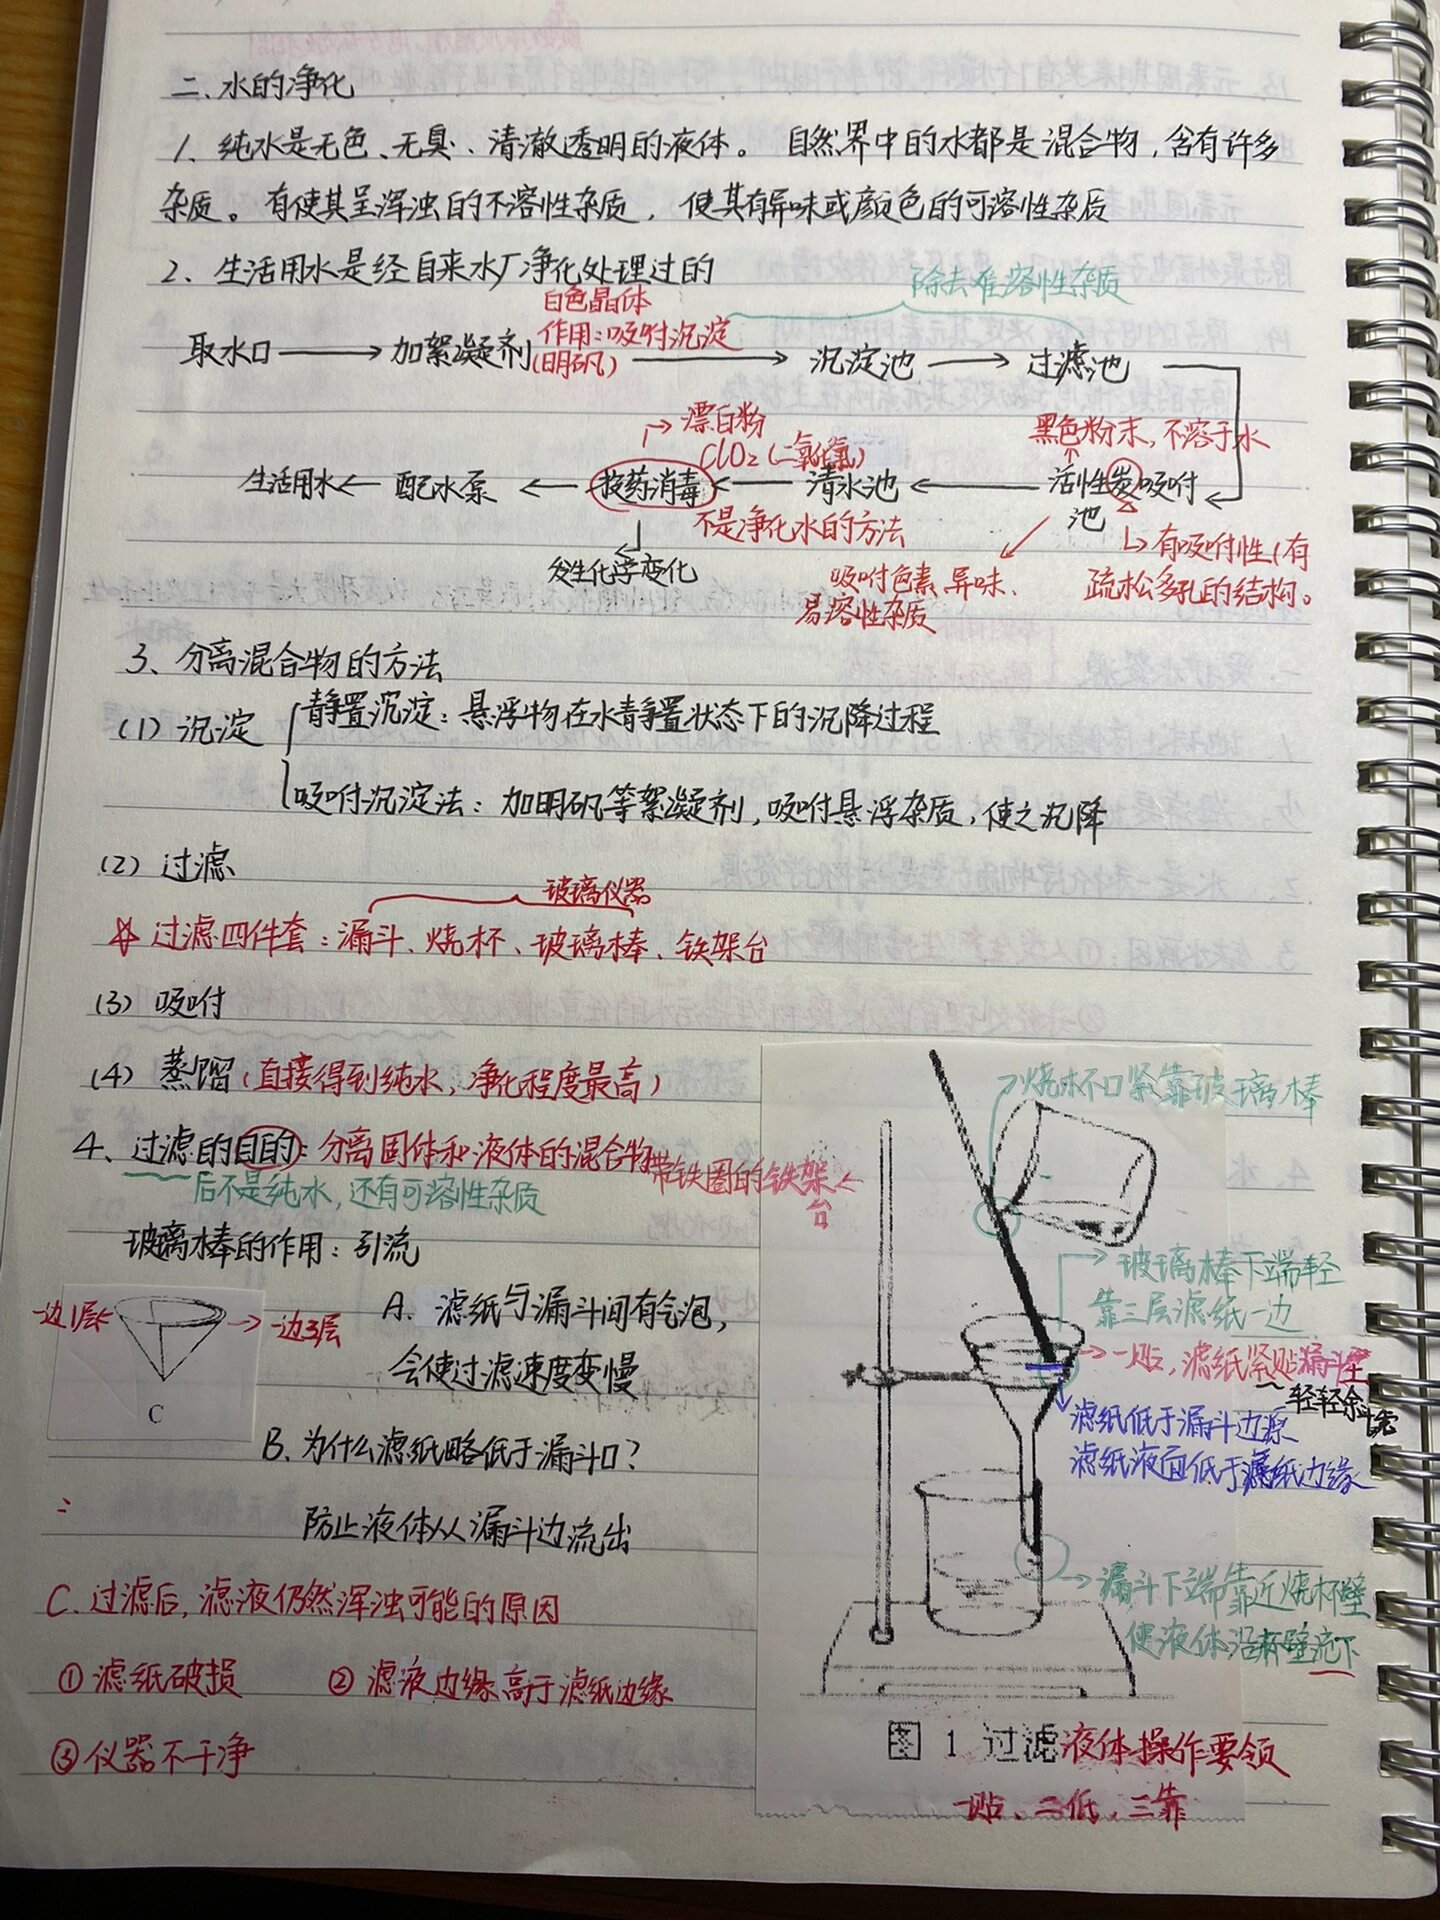 二、水的净化
1、纯水是无色、无臭、清澈透明的液体。 自然界中的水都是混合物,含有许多
杂质。有使其呈浑浊的不溶性杂质,使其有异味或颜色的可溶性杂质
2、生活用水是经自来水厂净化处理过的
除去难溶性杂质
白色晶体
作用:吸附沉淀
(明矾)
取水口 → 加絮凝剂 → 沉淀池 → 过滤池
漂白粉
ClO₂(二氧化氯)
黑色粉末,不溶于水
生活用水 ← 配水泵 ← 投药消毒 ← 清水池 ← 活性炭吸附
池
不是净化水的方法
发生化学变化
吸附色素、异味、
易溶性杂质
有吸附性(有
疏松多孔的结构。
3、分离混合物的方法
(1)沉淀
静置沉淀:悬浮物在水静置状态下的沉降过程
吸附沉淀法:加明矾等絮凝剂,吸附悬浮杂质,使之沉降
(2)过滤
玻璃仪器
☆ 过滤四件套:漏斗、烧杯、玻璃棒、铁架台
(3)吸附
(4)蒸馏(直接得到纯水,净化程度最高)
4、过滤的目的:分离固体和液体的混合物
后不是纯水,还有可溶性杂质
玻璃棒的作用:引流
一边1层
一边3层
C
A. 滤纸与漏斗间有气泡,
会使过滤速度变慢
B. 为什么滤纸略低于漏斗口?
防止液体从漏斗边流出
C. 过滤后,滤液仍然浑浊可能的原因
① 滤纸破损 ② 滤液边缘高于滤纸边缘
③ 仪器不干净
烧杯口紧靠玻璃棒
带铁圈的铁架
台
玻璃棒下端轻
靠三层滤纸一边
一贴,滤纸紧贴漏斗壁
滤纸低于漏斗边缘
滤纸液面低于滤纸边缘
漏斗下端靠近烧杯壁
使液体沿杯壁流下
图 1 过滤液体操作要领
一贴、二低、三靠